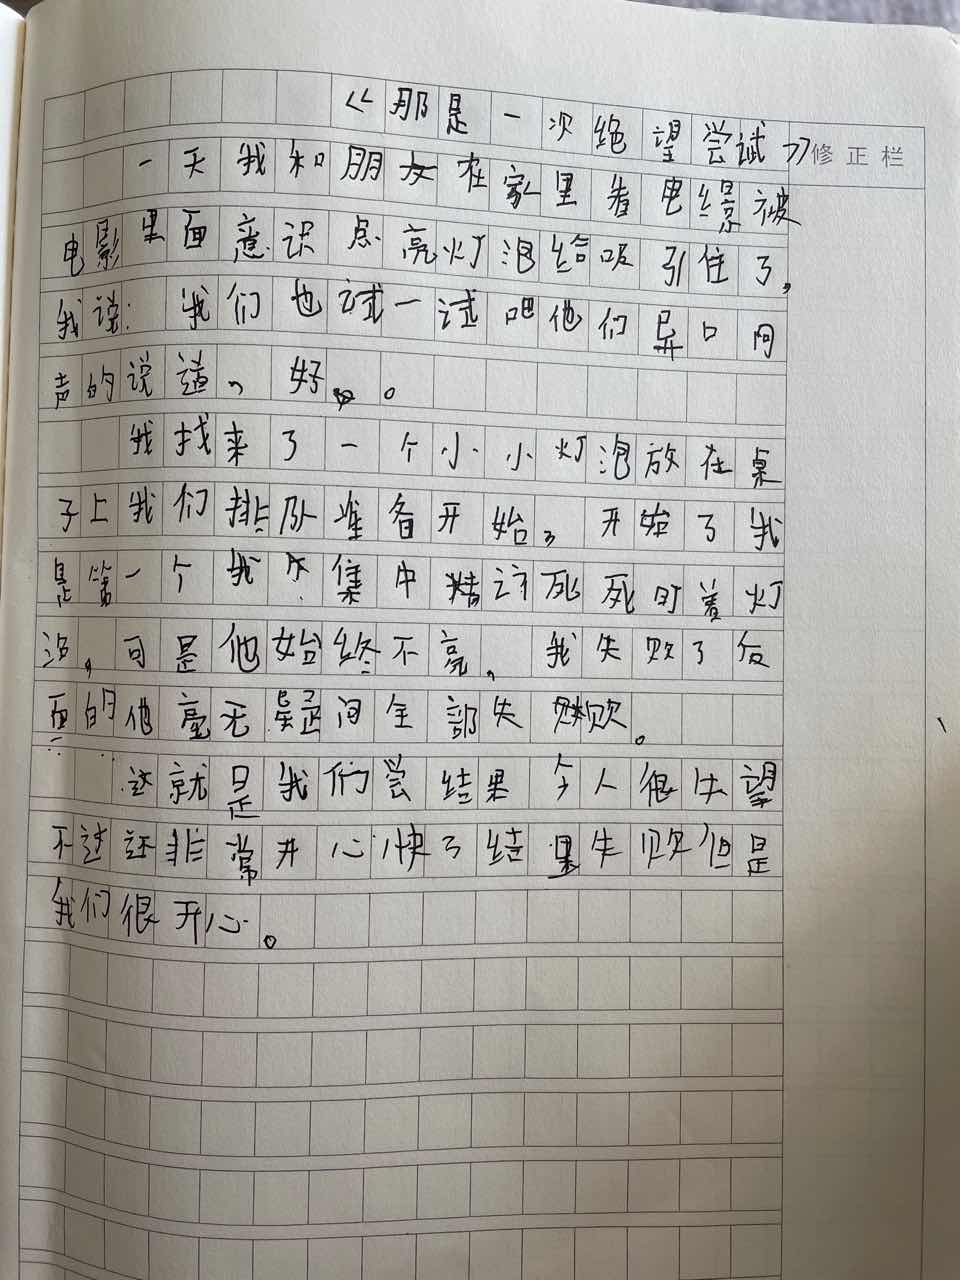 《那是一次绝望尝试》
修正栏
一天我和朋友在家里看电影被
电影里面意识点亮灯泡给吸引住了，
我说：我们也试一试吧他们异口同
声的说道，好。
我找来了一个小小灯泡放在桌
子上我们排队准备开始，开始了我
是第一个我集中精死死盯着灯
泡，可是他始终不亮，我失败了后
面的他毫无疑问全部失败。
这就是我们尝结果令人很失望
不过还非常开心快了结果失败但是
我们很开心。